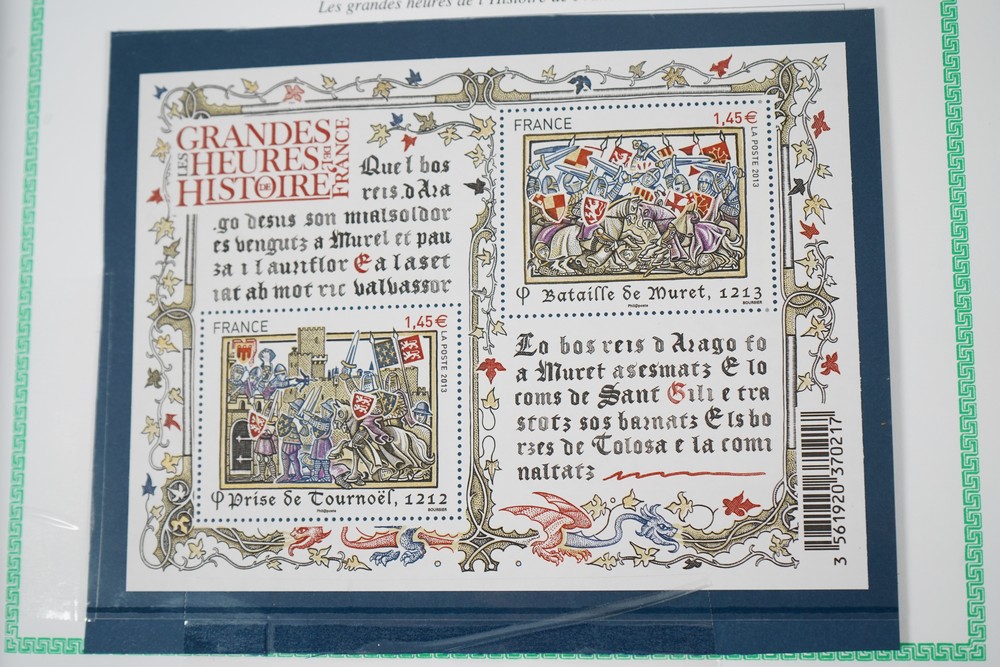 Les grandes heures de l'Histoire de
LES GRANDES
HEURES DE
HISTOIRE DE FRANCE
Quel bos
reis.d Ara
.go desus son mialsoldor
es vengutz a Murel et pau
za i lauriflor E a la set
iat ab mot ric valvassor
FRANCE 1,45€
LA POSTE 2013
φ Bataille de Muret, 1213
Phil@poste BOURSIER
FRANCE 1,45€
LA POSTE 2013
φ Prise de Tournoël, 1212
Phil@poste BOURSIER
Lo bos reis d Arago fo
a Muret asesmatz E lo
coms de Sant Gili e tra
stotz sos barnatz Els bo
rzes de Tolosa e la comi
naltatz
3 561920 370217